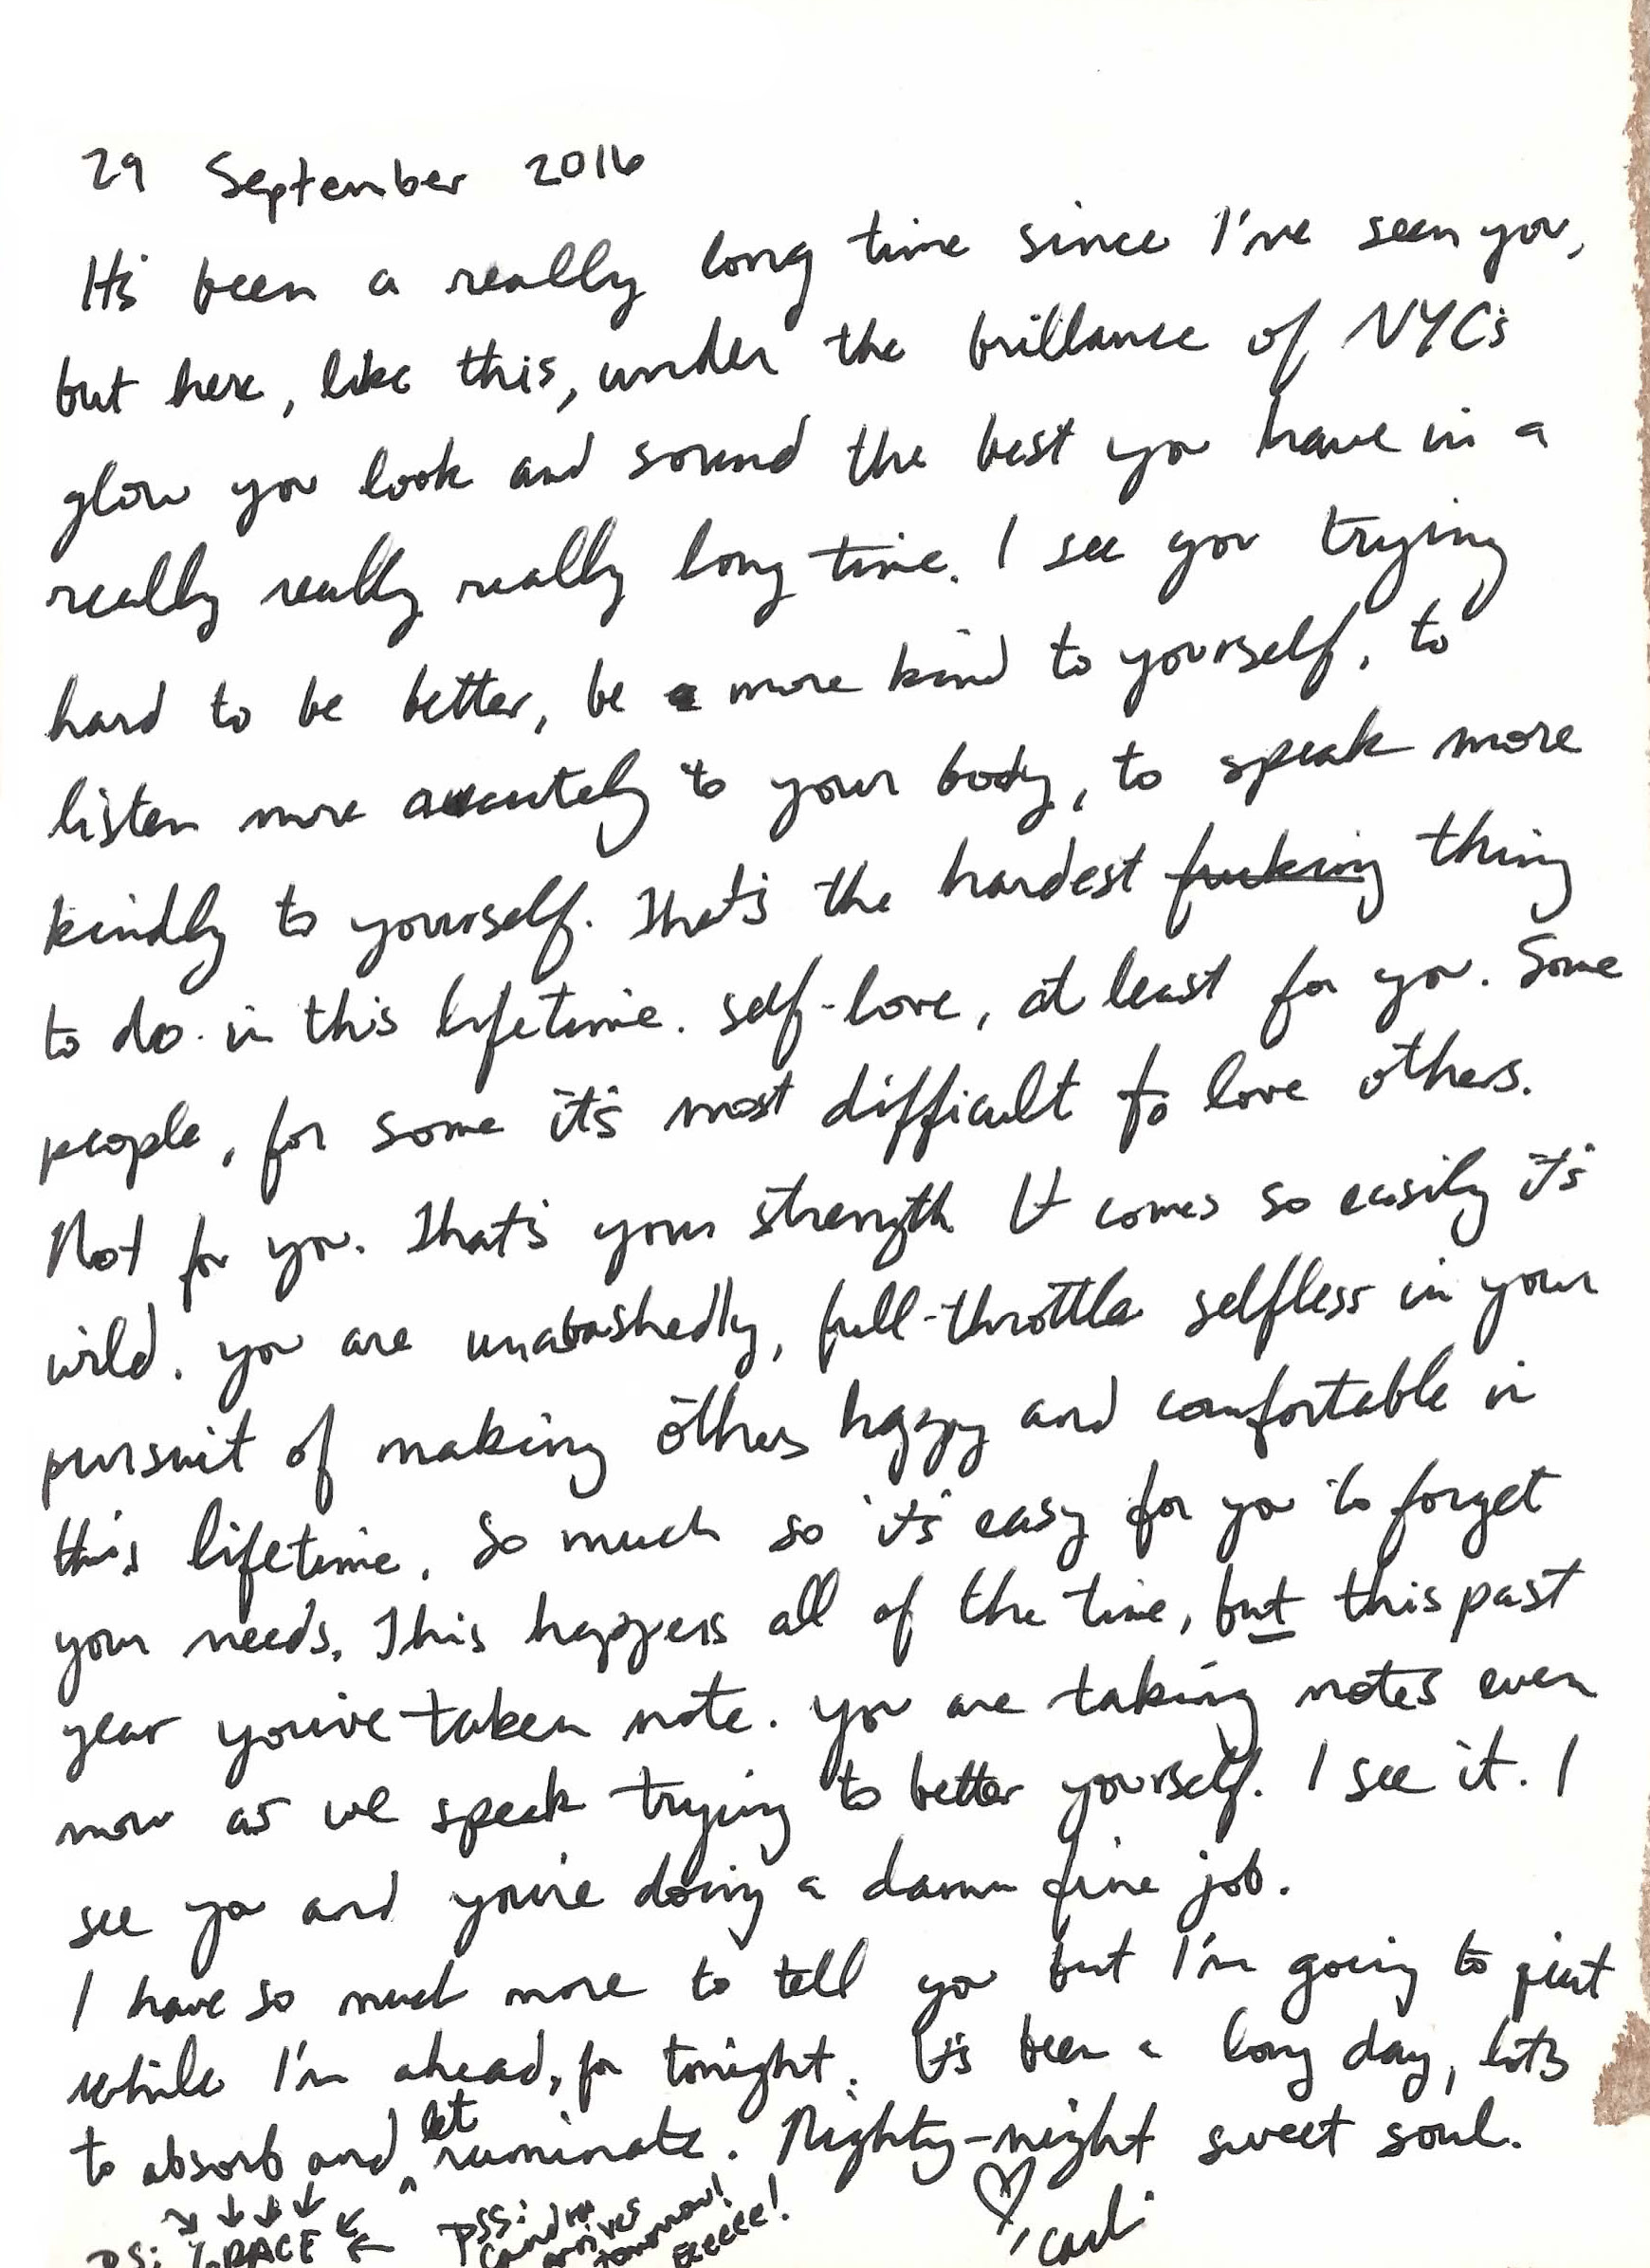 29 September 2016
It's been a really long time since I've seen you,
but here, like this, under the brillance of NYC's
glow you look and sound the best you have in a
really really really long time. I see you trying
hard to be better, be more kind to yourself, to
listen more acutely to your body, to speak more
kindly to yourself. That's the hardest fucking thing
to do. in this lifetime. self-love, at least for you. Some
people, for some it's most difficult to love others.
Not for you. That's your strength It comes so easily it's
wild. you are unabashedly, full-throttle selfless in your
pursuit of making others happy and comfortable in
this lifetime. So much so it's easy for you to forget
your needs. This happens all of the time, but this past
year you've taken note. you are taking notes even
now as we speak trying to better yourself. I see it. I
see you and you're doing a damn fine job.
I have so much more to tell you but I'm going to quit
while I'm ahead, for tonight. It's been a long day, lots
to absorb and let ruminate. Nighty-night sweet soul.
♡, Carli
PS: GRACE
PSS:
arrives
tomorrow!
Eeeeee!